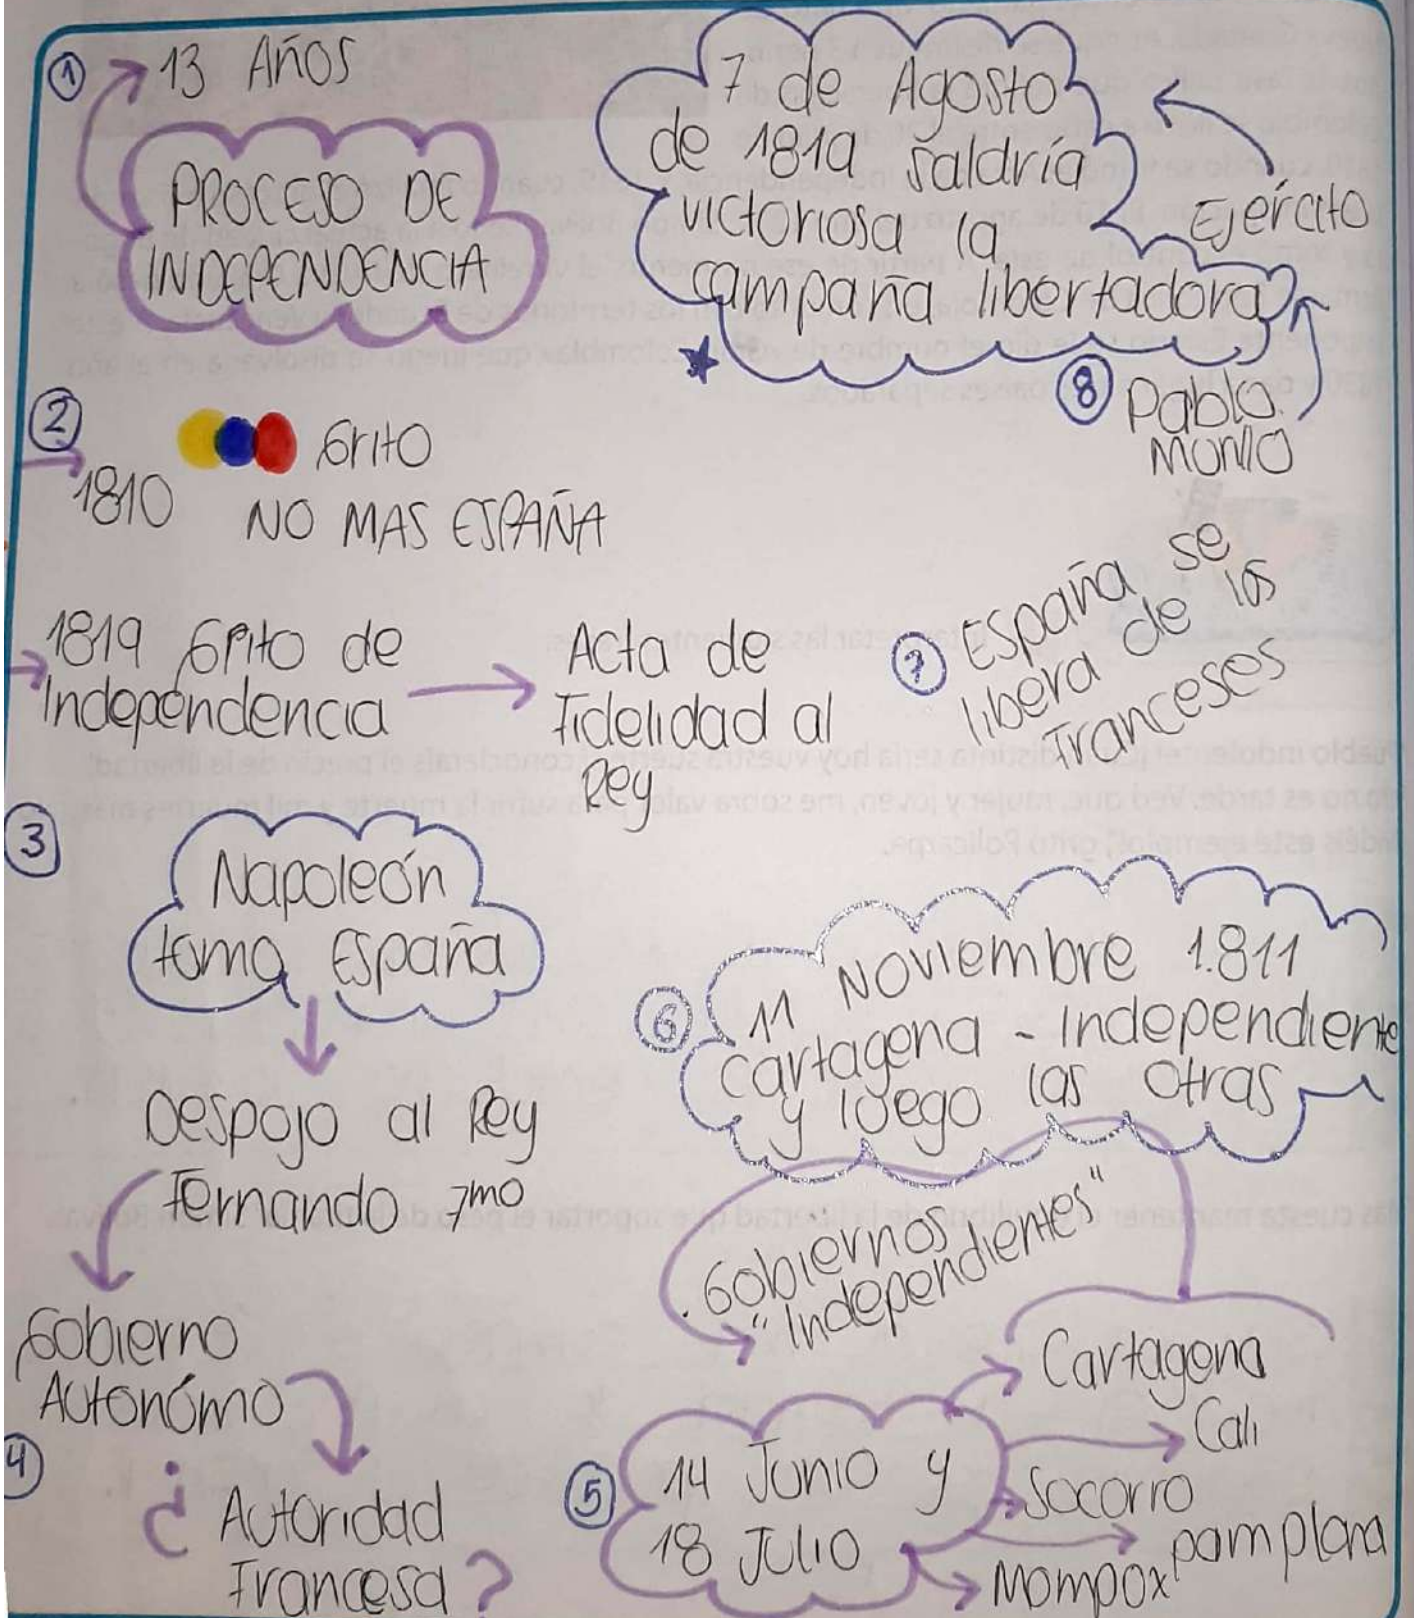 1
13 Años
PROCESO DE
INDEPENDENCIA
2
1810
Grito
NO MAS ESPAÑA
1819 Grito de
Independencia
Acta de
Fidelidad al
Rey
3
Napoleón
toma España
Despojo al Rey
Fernando 7mo
Gobierno
Autonómo
4
¿ Autoridad
Francesa ?
5
14 Junio y
18 Julio
Cartagena
Cali
Socorro
pamplona
Mompox
6
11 Noviembre 1.811
Cartagena - Independiente
y luego las otras
. Gobiernos
"Independientes"
7
España se
libera de los
Franceses
8
Pablo
Morillo
Ejército
7 de Agosto
de 1819 saldría
victoriosa la
campaña libertadora